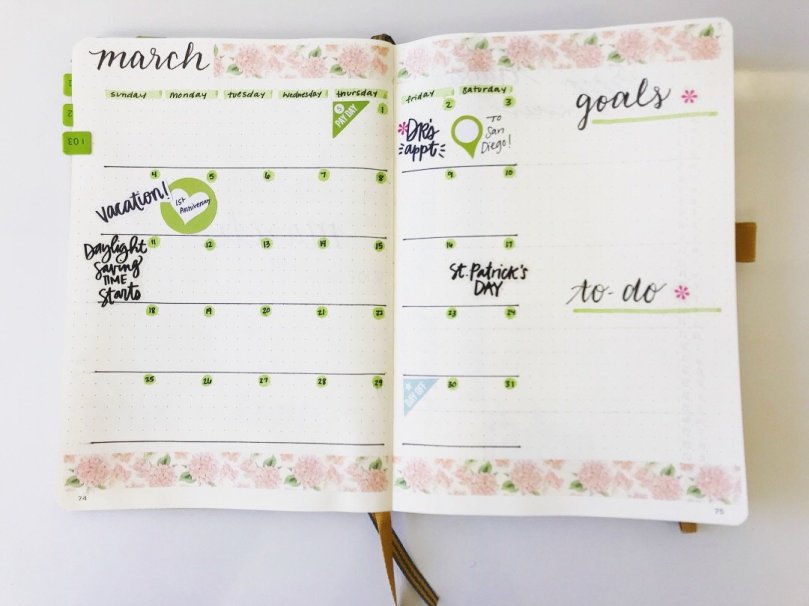 march
sunday monday tuesday wednesday thursday friday saturday
1 2 3
$ PAY DAY
DR's
appt
TO
San
Diego!
goals
103
4 5 6 7 8 9 10
Vacation!
1st
Anniversary
11 12 13 14 15 16 17
Daylight
Saving
TIME
Starts
St. Patrick's
DAY
to-do
18 19 20 21 22 23 24
25 26 27 28 29 30 31
DAY OFF
74 75